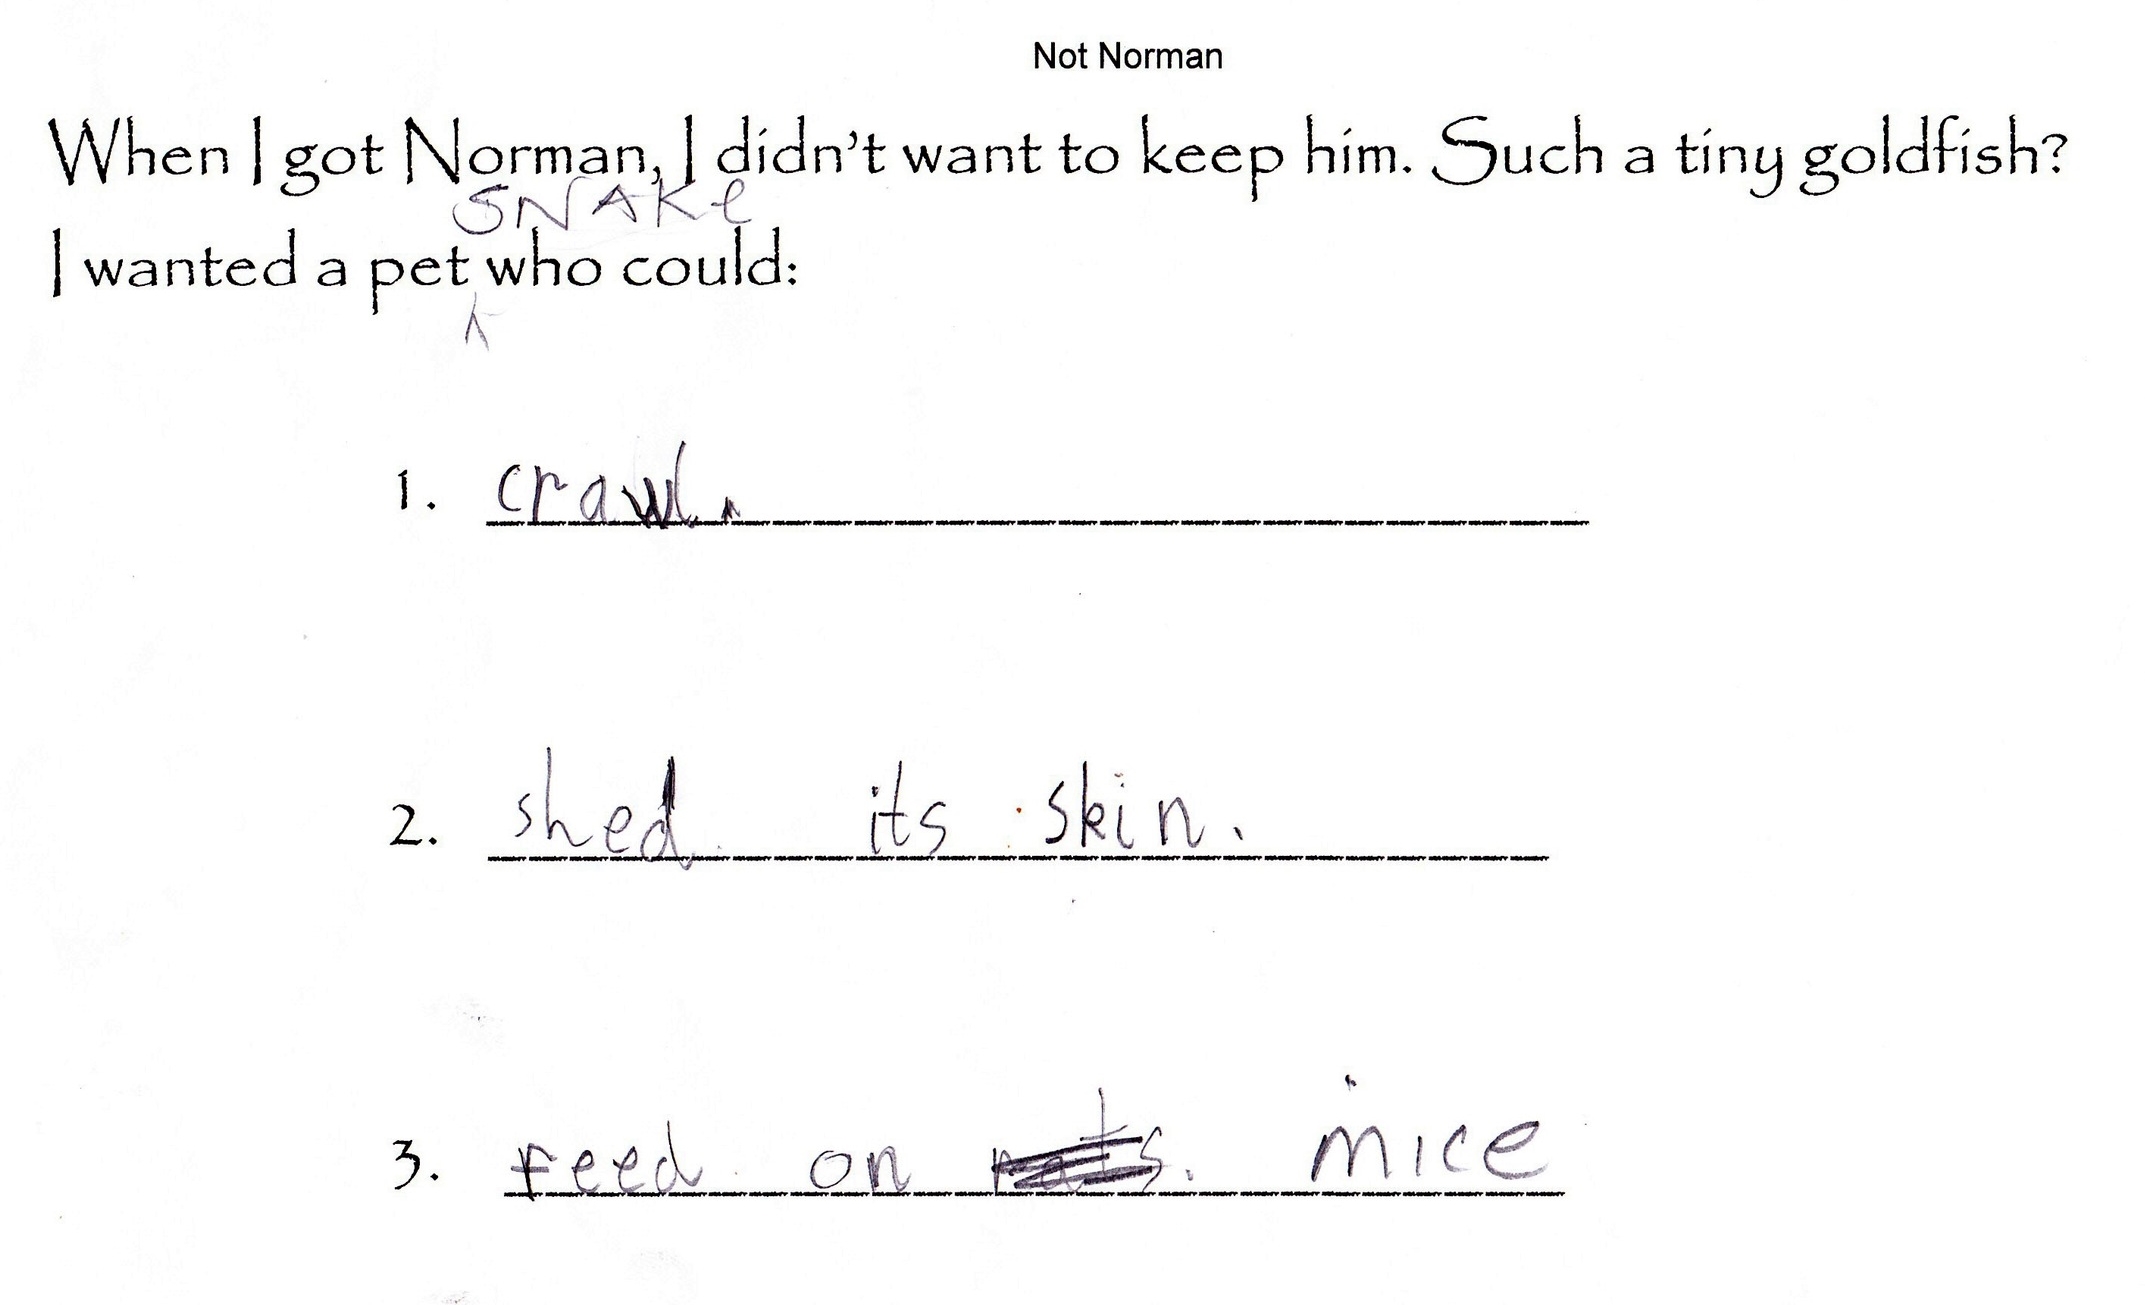 Not Norman
When I got Norman, I didn't want to keep him. Such a tiny goldfish?
SNAKe
I wanted a pet who could:
1. crawl.
2. shed its skin.
3. feed on rats. mice